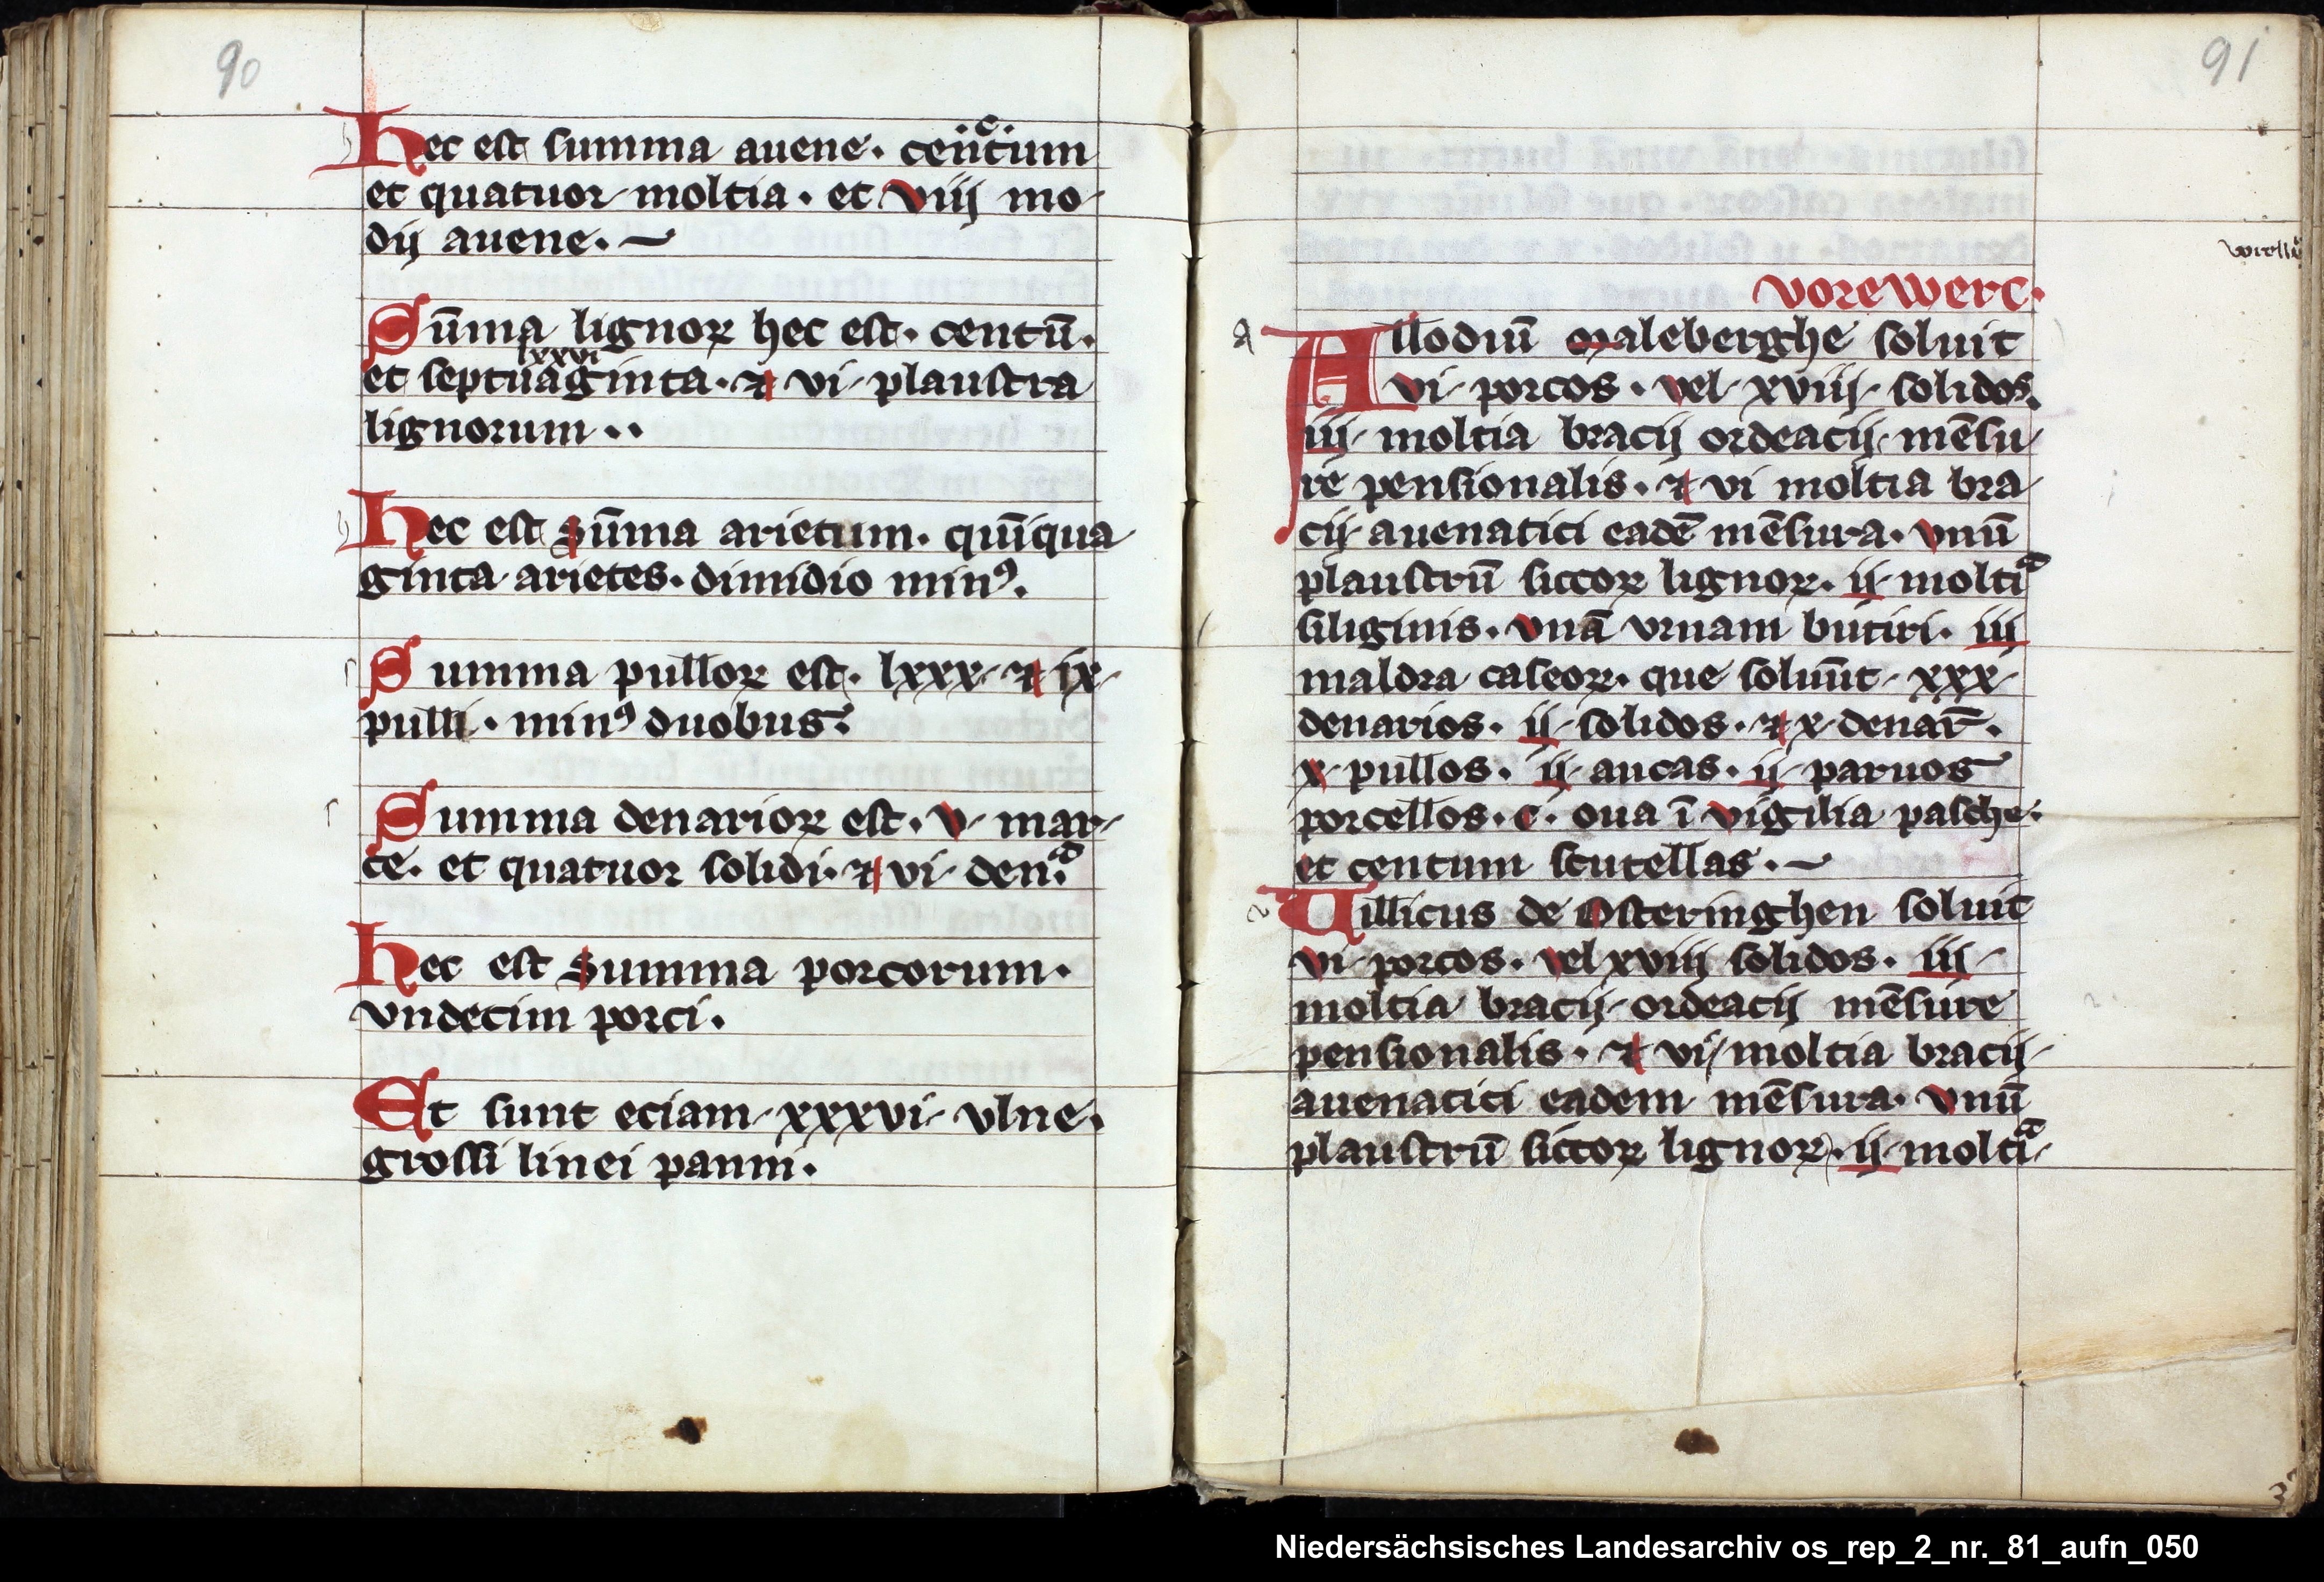 90
Hec est summa auene. centum
.c.
et quatuor moltia. et viij mo
dij auene.
Sūma lignoꝝ hec est. centū.
lxxvi
et septuaginta. ⁊ vi plaustra
lignorum..
Hec est sūma arietum. quīqua
ginta arietes. dimidio minꝰ.
Summa pulloꝝ est. lxxx ⁊ ix
pulli. minꝰ duobus.
Summa denarioꝝ est. v mar
ce. et quatuor solidi. ⁊ vi den.
Hec est summa porcorum.
vndecim porci.
Et sunt eciam xxxvi vlne.
grossi linei panni.
91
vorewerc.
a
Allodiū maleberghe soluit
vi porcos. vel xviij solidos.
iij moltia bracij ordeacij mēsu
re pensionalis. ⁊ vi moltia bra
cij auenatici eadē mēsura. vnū
plaustrū siccoꝝ lignoꝝ. ij moltiᵃ
siliginis. vnā vrnam butiri. iij
maldra caseoꝝ. que soluūt xxx
denarios. ij solidos. ⁊ x denar̄.
x pullos. ij aucas. ij paruos
porcellos. c. oua ī vigilia pasche.
et centum scutellas.
Uillicus de Osteringhen soluit
vi porcos. vel xviij solidos. iij
moltia bracij ordeacij mēsure
pensionalis. ⁊ vi moltia bracij
auenatici eadem mēsura. vnū
plaustrū siccoꝝ lignoꝝ. ij moltiᵃ
Niedersächsisches Landesarchiv os_rep_2_nr._81_aufn_050